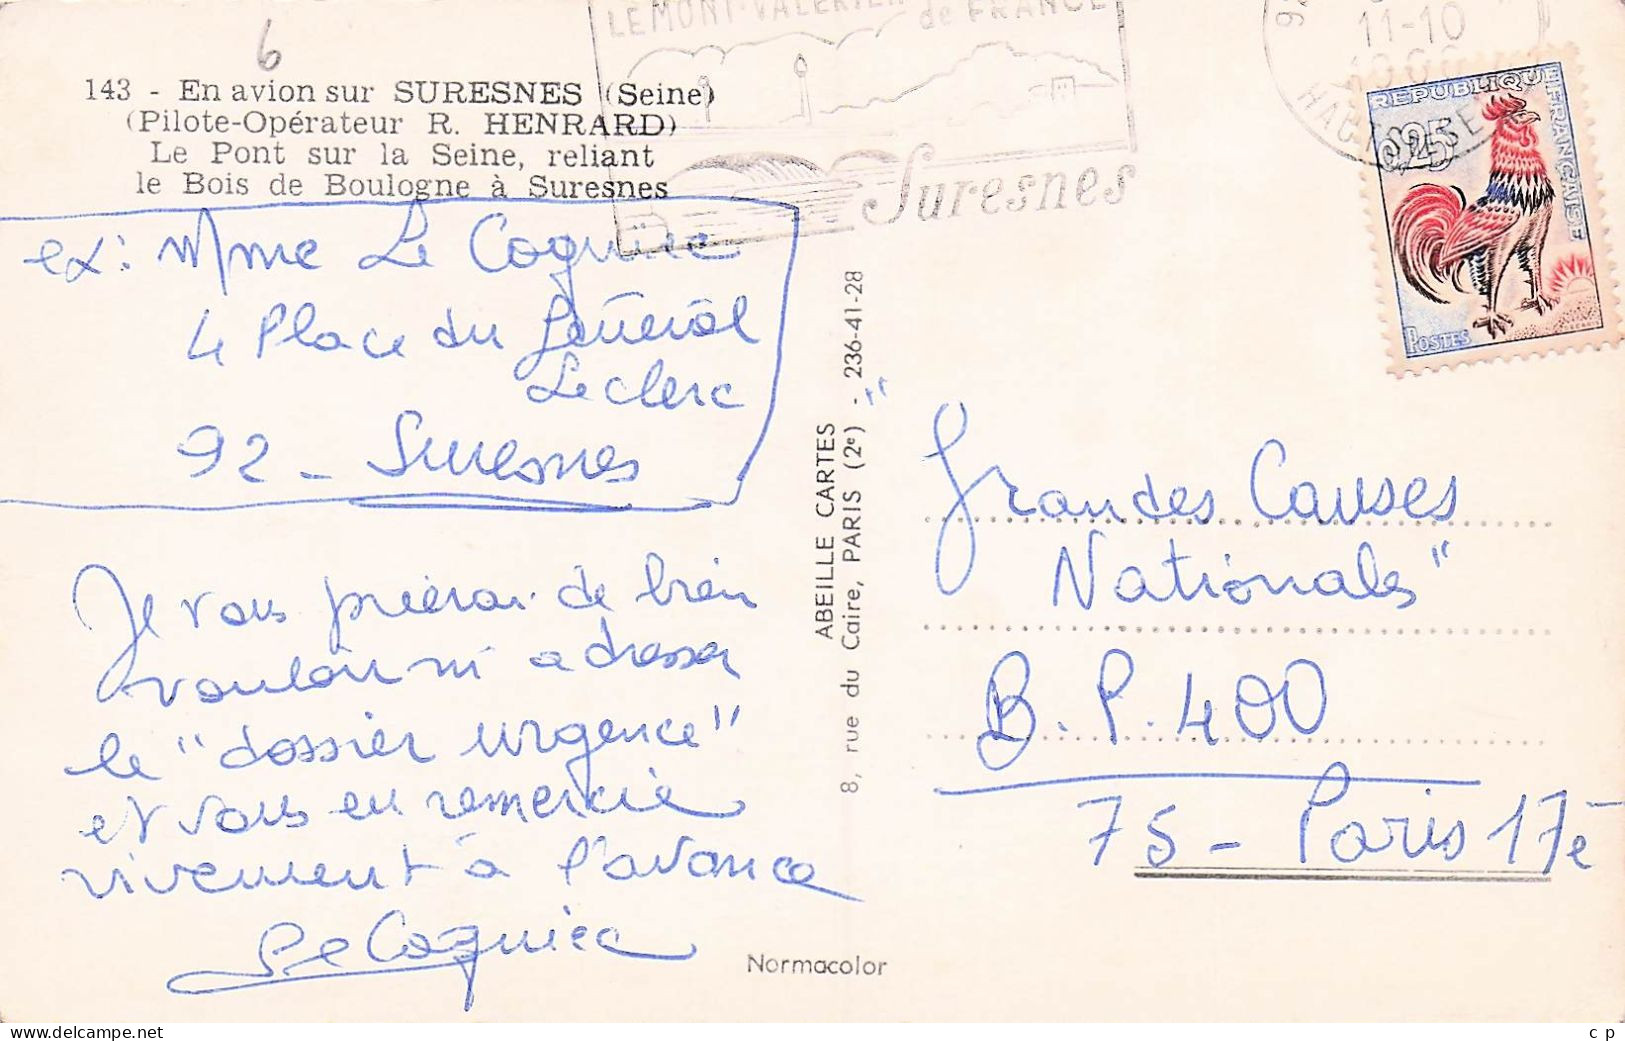 6
143 - En avion sur SURESNES (Seine)
(Pilote-Opérateur R. HENRARD)
Le Pont sur la Seine, reliant
le Bois de Boulogne à Suresnes
LE MONT-VALÉRIEN
de FRANCE
Suresnes
11-10
REPUBLIQUE FRANÇAISE
0,25
POSTES
ex: Mme Le Coguiec
4 Place du Général
Leclerc
92 - Suresnes
Je vous prierai de bien
vouloir m'adresser
le "dossier urgence"
et vous en remercie
vivement à l'avance
Le Coguiec
ABEILLE CARTES
8, rue du Caire, PARIS (2e) - 236-41-28
Normacolor
"Grandes Causes
Nationales"
B.P. 400
75 - Paris 17è
© Delcampe.net
c p